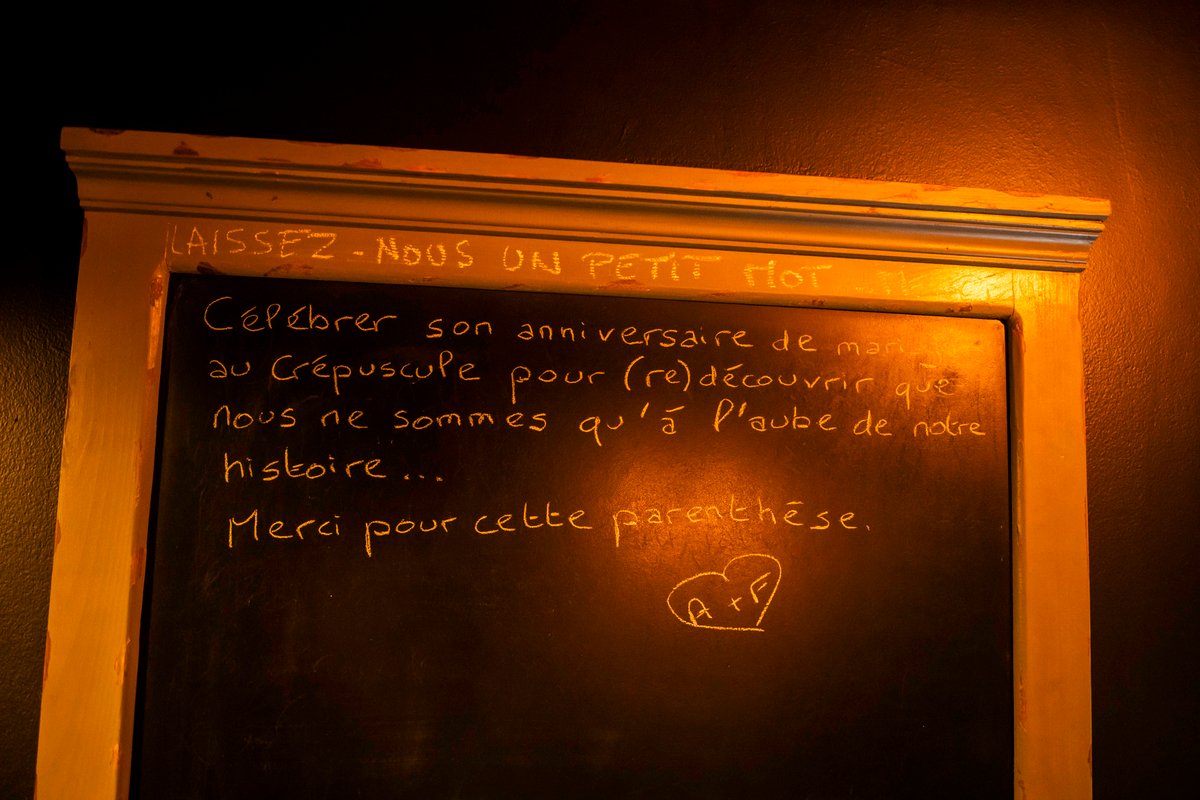 LAISSEZ-NOUS UN PETIT MOT
Célébrer son anniversaire de
au Crépuscule pour (re)découvrir que
nous ne sommes qu'à l'aube de notre
histoire...
Merci pour cette parenthèse.
A+F